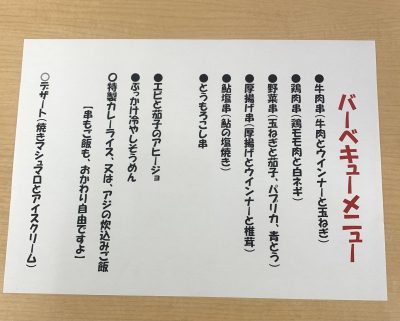 バーベキューメニュー
●牛肉串(牛肉とウインナーと玉ねぎ)
●鶏肉串(鶏モモ肉と白ネギ)
●野菜串(玉ねぎと茄子、パプリカ、青とう)
●厚揚げ串(厚揚げとウインナーと椎茸)
●鮎塩串(鮎の塩焼き)
●とうもろこし串
●エビと茄子のアヒージョ
●ぶっかけ冷やしそうめん
〇特製カレーライス、又は、アジの炊込みご飯
【串もご飯も、おかわり自由ですよ】
〇デザート(焼きマシュマロとアイスクリーム)